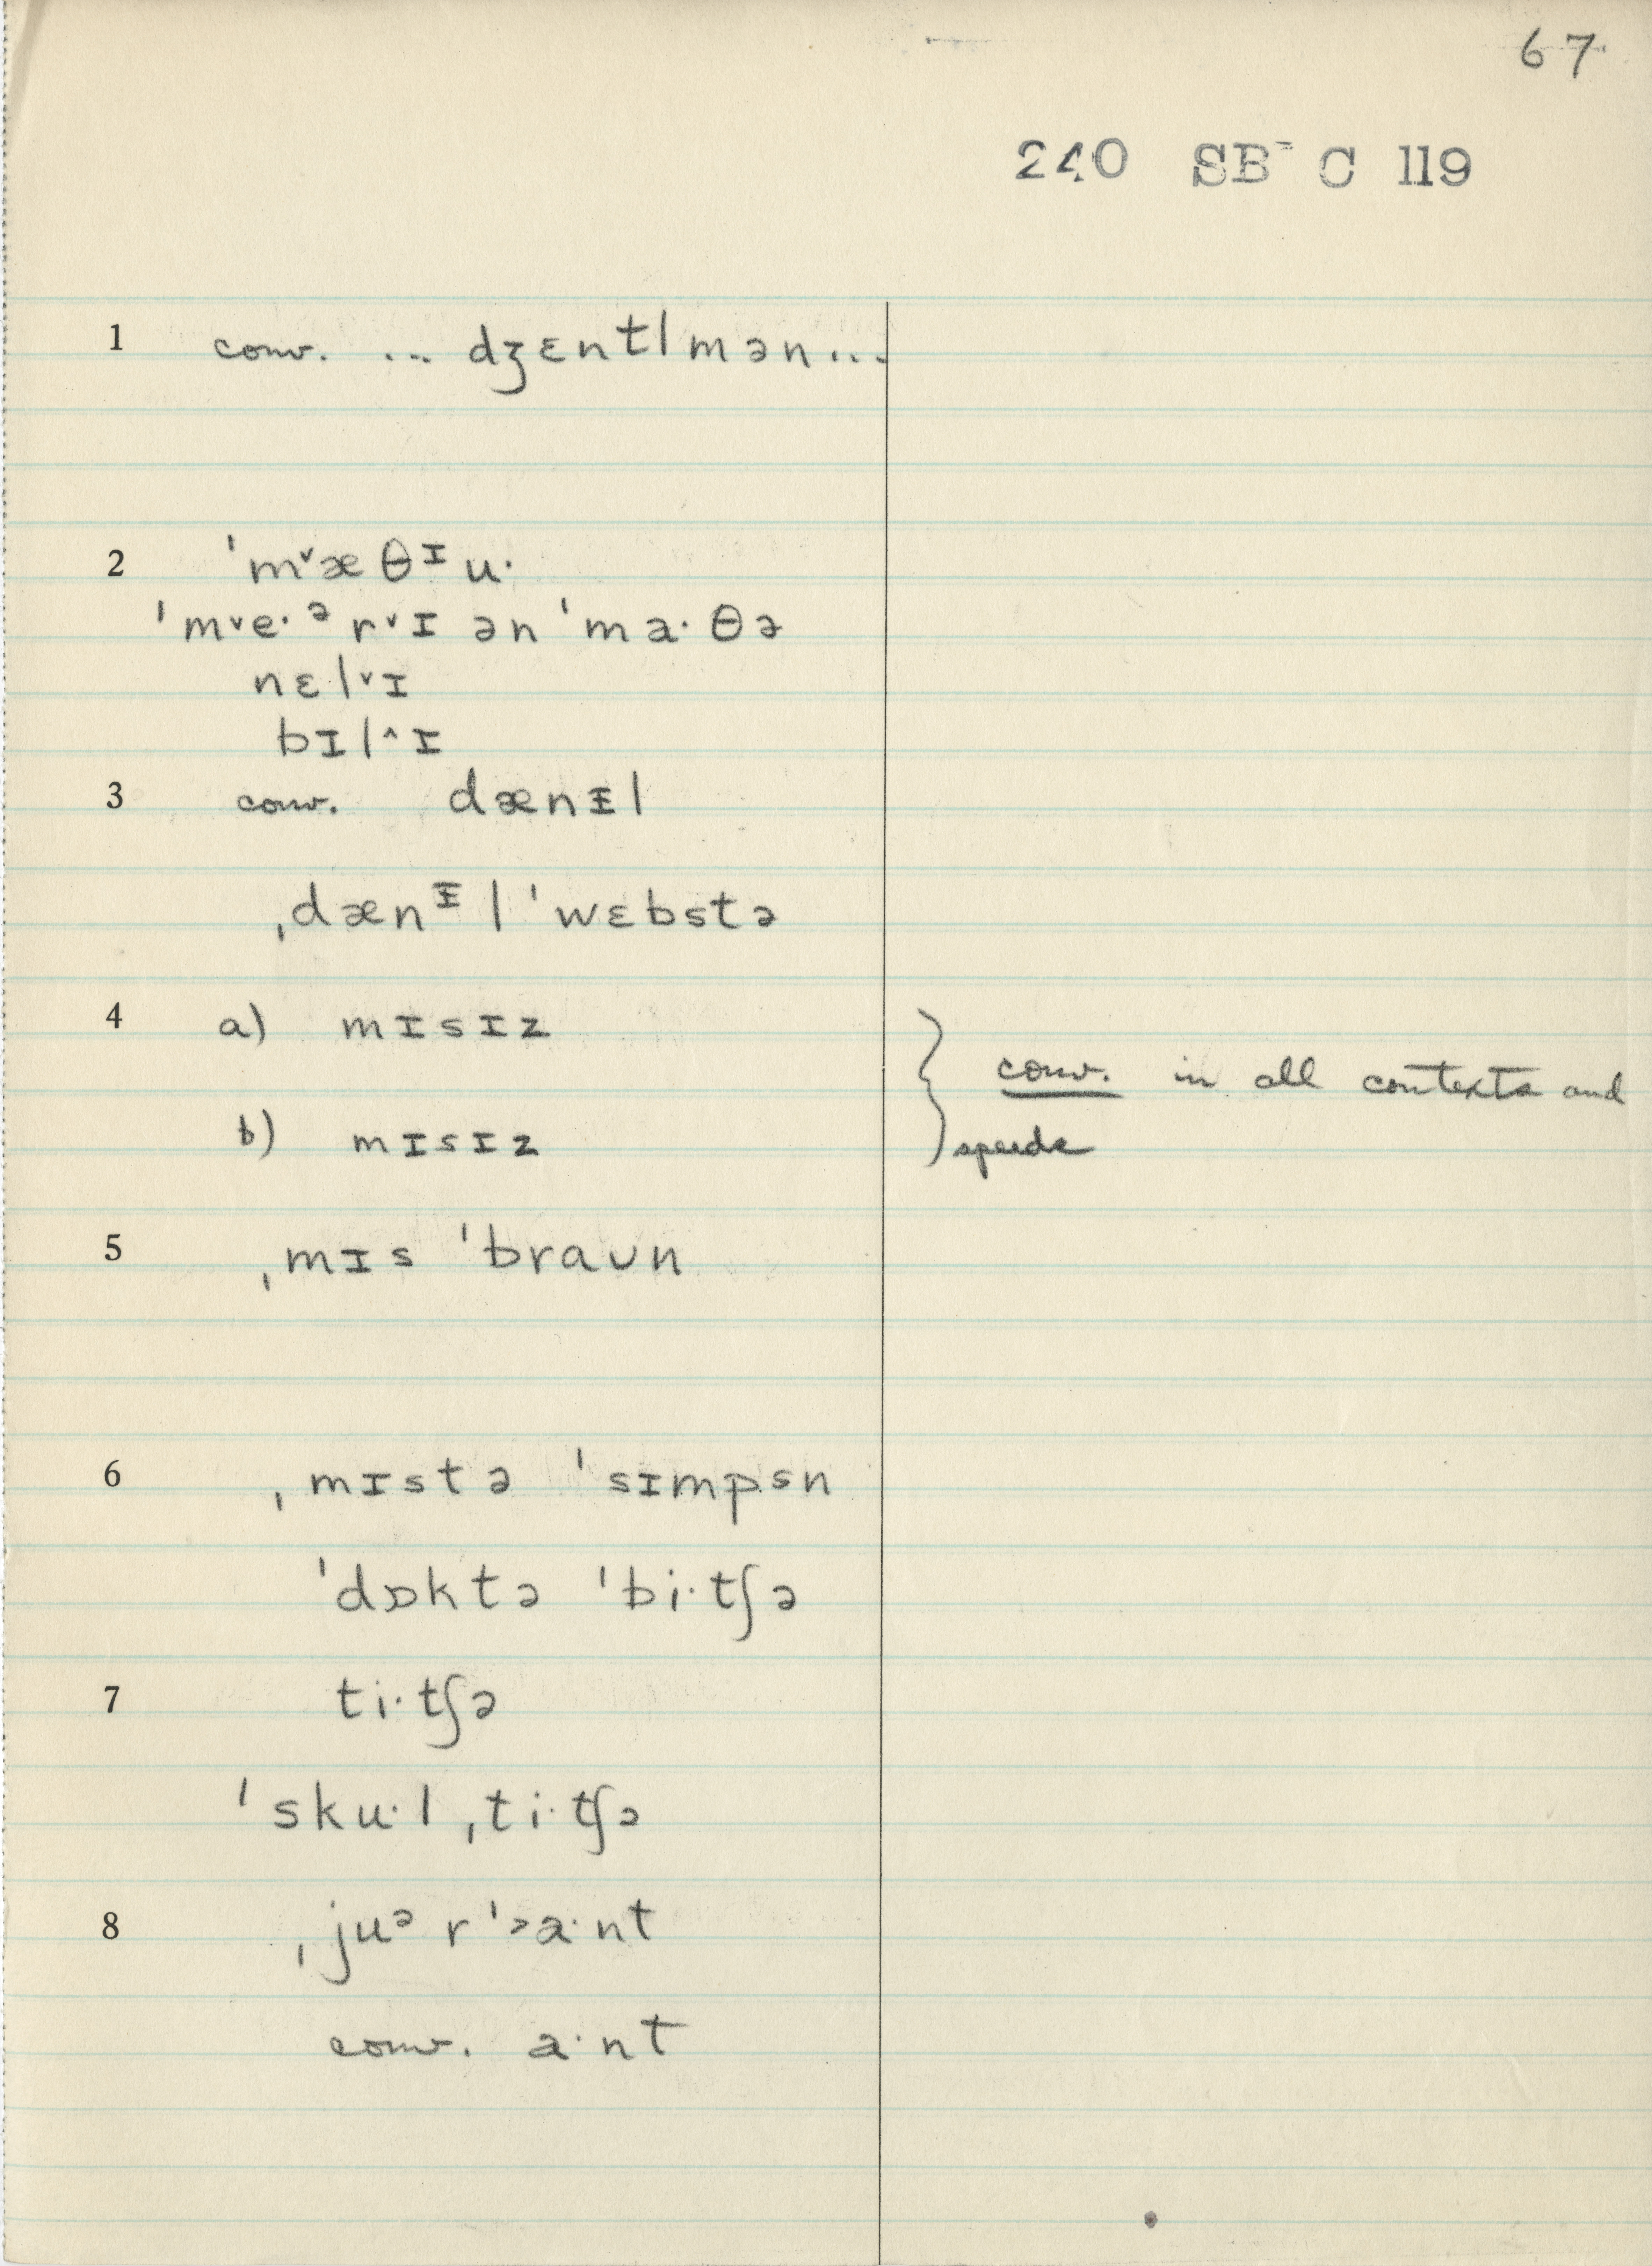 67
240 SB- C 119
1 conv. ... dʒɛntlmən...
2 ˈm˅æθᶦu·
ˈm˅e·ᵊr˅ɪ ən ˈma·θə
nɛl˅ɪ
bɪl^ɪ
3 conv. dænᵻl
ˌdænᵻl ˈwɛbstə
4 a) mɪsɪz } conv. in all contexts and
b) mɪsɪz speeds
5 ˌmɪs ˈbraʊn
6 ˌmɪstə ˈsɪmpsn
ˈdɒktə ˈbi·tʃə
7 ti·tʃə
ˈsku·l ˌti·tʃə
8 ˌjuᵊ r ˈ˃a·nt
conv. a·nt